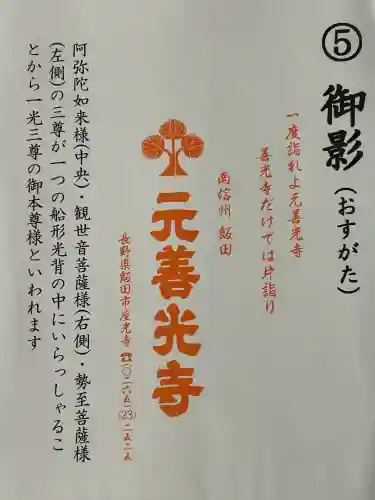 ⑤御影(おすがた)
一度詣れよ元善光寺
善光寺だけでは片詣り
南信州 飯田
元善光寺
長野県飯田市座光寺 ☎(〇二六五)(23)二五二五
阿弥陀如来様(中央)・観世音菩薩様(右側)・勢至菩薩様
(左側)の三尊が一つの船形光背の中にいらっしゃるこ
とから一光三尊の御本尊様といわれます